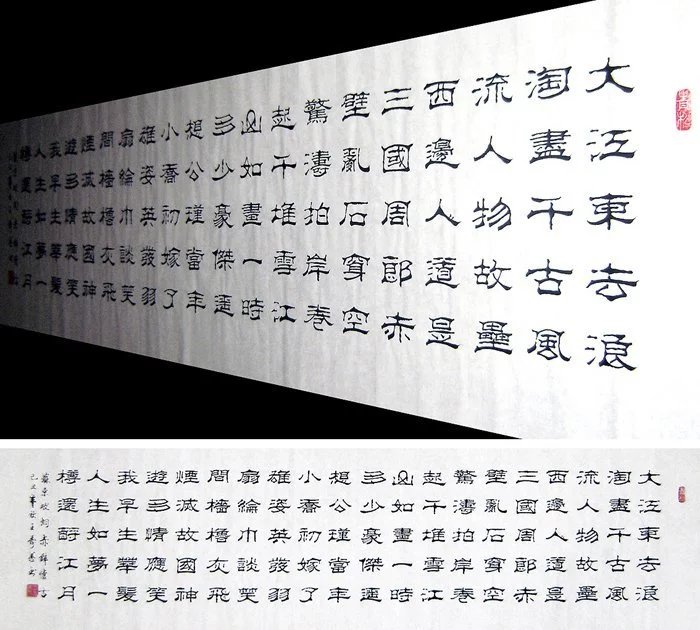 大江東去浪
淘盡千古風
流人物故壘
西邊人道是
三國周郎赤
壁亂石穿空
驚濤拍岸卷
起千堆雪江
山如畫一時
多少豪傑遥
想公瑾當年
小喬初嫁了
雄姿英發羽
扇綸巾談笑
間檣櫓灰飛
煙滅故國神
遊多情應笑
我早生華髮
人生如夢一
樽還酹江月
大江東去浪
淘盡千古風
流人物故壘
西邊人道是
三國周郎赤
壁亂石穿空
驚濤拍岸卷
起千堆雪江
山如畫一時
多少豪傑遥
想公瑾當年
小喬初嫁了
雄姿英發羽
扇綸巾談笑
間檣櫓灰飛
煙滅故國神
遊多情應笑
我早生華髮
人生如夢一
樽還酹江月
蘇東坡詞赤壁懷古
己丑年秋王秀書